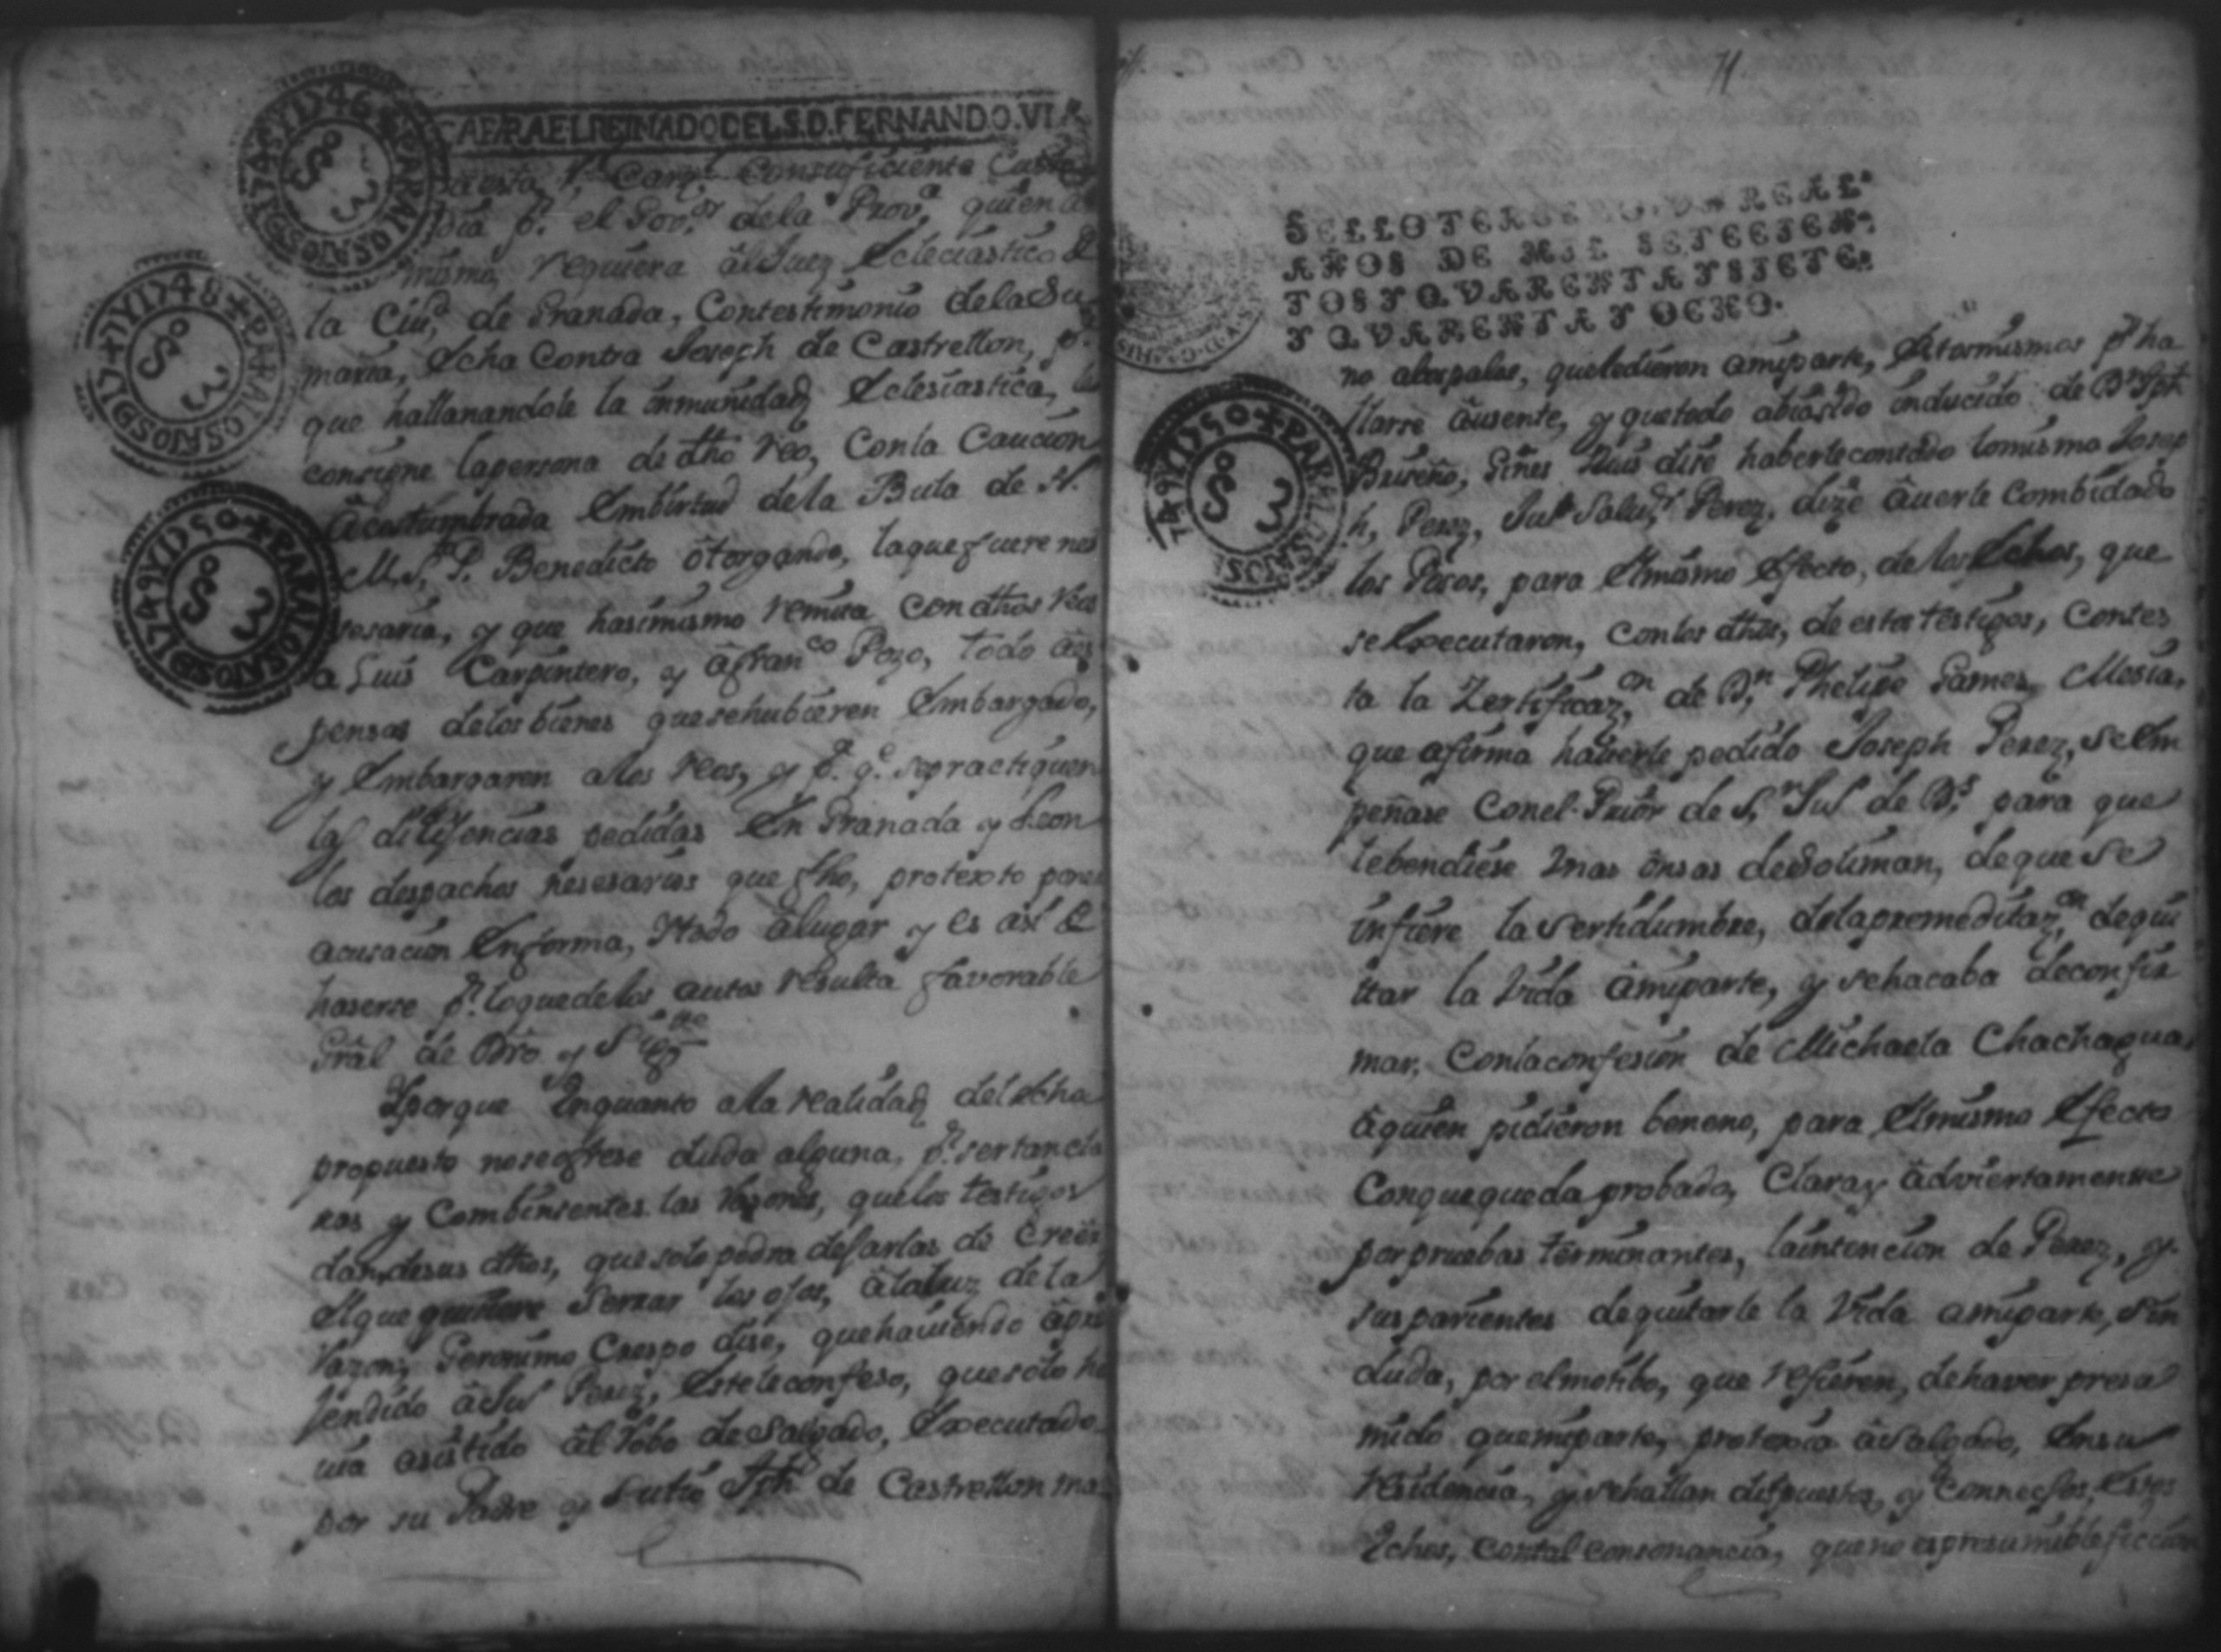 PARA EL REINADO DEL S. D. FERNANDO. VI
1745 Y 1746 + PARA LOS AÑOS DE
1747 Y 1748 + PARA LOS AÑOS DE
1749 Y 1750 + PARA LOS AÑOS DE
a esta Rl. Carzl. Con suficiente Custo
dia pr. el Govor. dela Prova. quien a
mismo requiera âl Juez Ecleciastico de
la Ciud. de Granada, Con testimonio dela Su
maria, Echa Contra Joseph de Castrellon, pa.
que hallanandole la inmunidad Eclesiastica, le
consigne la persona de dho reo, Con la Caucion
âcostumbrada Embirtud dela Bula de N.
M. S. P. Benedicto ôtorgando, laque fuere nes
sesaria, y que hasimismo remita con dhos reos
a Luis Carpintero, y âfranco Pozo, todo âes
pensas delos bienes que se hubieren Embargado,
y Embargaren a los reos, y pa. qe. se practiquen
las dilijencias pedidas En Granada y Leon
los despachos nesesarios que fho, protexto poner
acusacion Enforma, Ytodo âlugar y es asi de
haserse pr. loque de los autos resulta favorable
Gral de Dro y Sigte
Yporque Enquanto a la realidad del Echo
propuesto nose ofrese duda alguna, pr. ser tan cla
ras y Combinsentes las razones, que los testigos
dan, desus dhos, que solo podra dejarlas de Creer
El que quisiere Serrar los ojos, âla luz de la
razon; Geronimo Crespo dise, que haviendo âpre
hendido âJuo Perez, Este le confeso, que solo ha
via asistido âl robo de Salgado, Executado
por su Padre y su tio Jph de Castrellon ma
71
SELLO TERCERO, VN REAL
AÑOS DE MIL SETECIEN
TOS Y QVARENTA Y SIETE
Y QVARENTA Y OCHO.
1749 Y 1750 + PARA LOS AÑOS DE
no alos palos, que le dieron amiparte, Estos mismos pr. ha
llarse âusente, y que todo abia sido inducido de Dn Jph
Briseño, Gines Ruis dise haberle contado lomismo Josep
h, Perez, Juo Salvr. Perez, dize âuerle Combidado
los Pesos, para Elmismo Efecto, de los Echos, que
se Executaron, Con los dhos, de estos testigos, Contes
ta la Zertificazon. de Dn. Phelipe Gamez, Mesia,
que afirma haverle pedido Joseph Perez, se Em
peñase Conel Prior de Sn. Juo de Ds. para que
le bendiese Vnas ônsas de Soliman, de que se
infiere la Sertidumbre, de la premeditazon. de qui
tar la Vida âmiparte, y sehacaba deconfir
mar, Con la confesion de Michaela Chachagua,
âquien pidieron beneno, para Elmismo Efecto
Conque queda probado, Clara y âdviertamente
por pruebas terminantes, la intencion de Perez, y
sus parientes de quitarle la Vida amiparte, Sin
duda, por el motibo, que refieren, de haver presu
mido que miparte, protexia âSalgado, En su
residencia, y se hallan dispuestos, y Connecsos, Estos
Echos, Con tal consonancia, que no es presumible ficcion